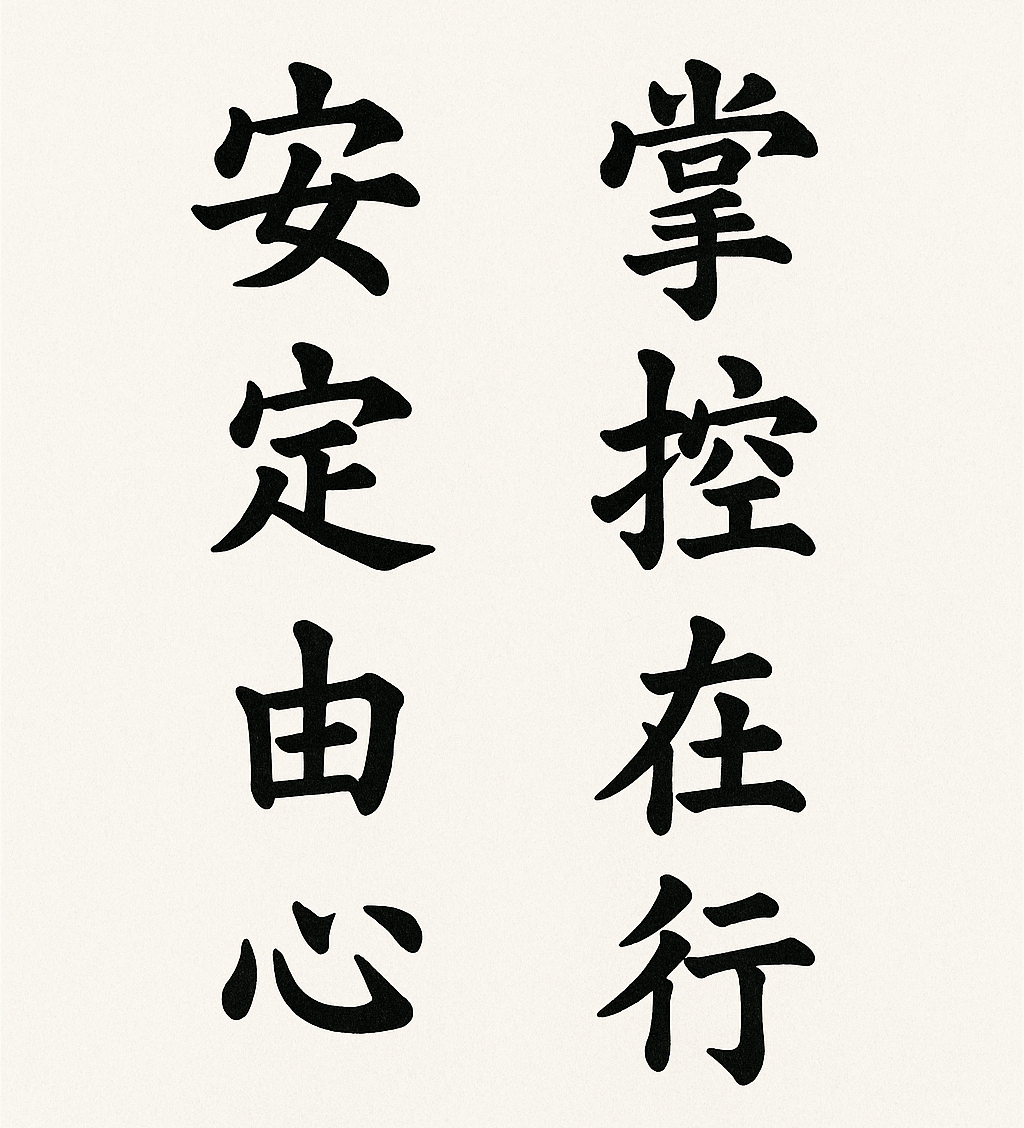 掌控在行
安定由心